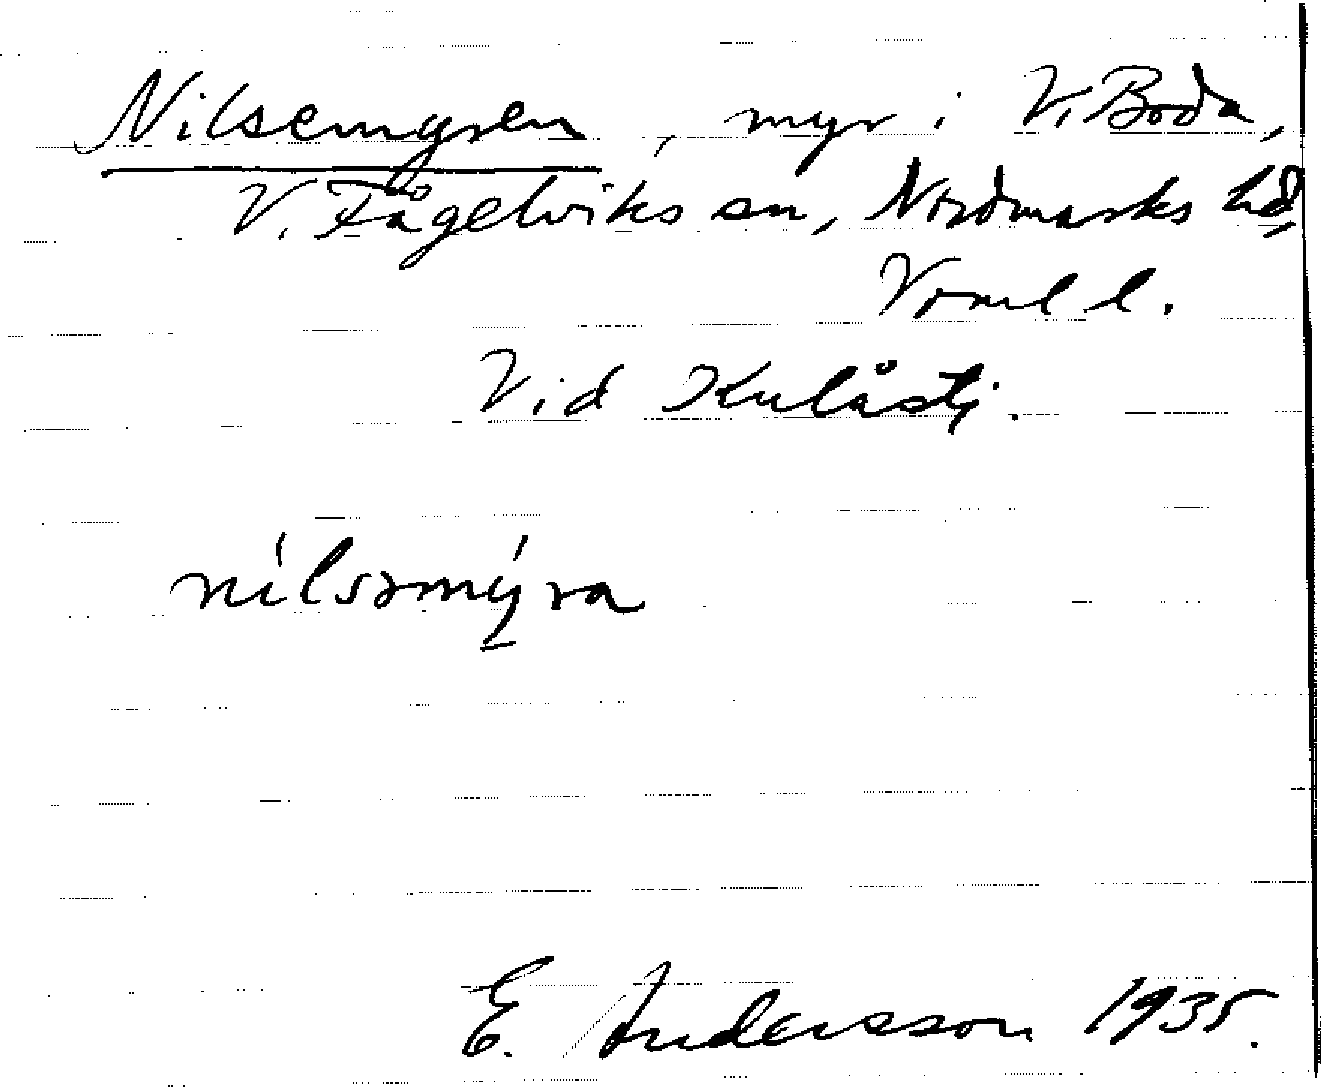 Nilsemyren, myr i V. Boda,
V. Fågelviks sn, Nordmarks hd,
Vrml l.
Vid Kulåstj.
nílsəmýra
E. Andersson 1935.